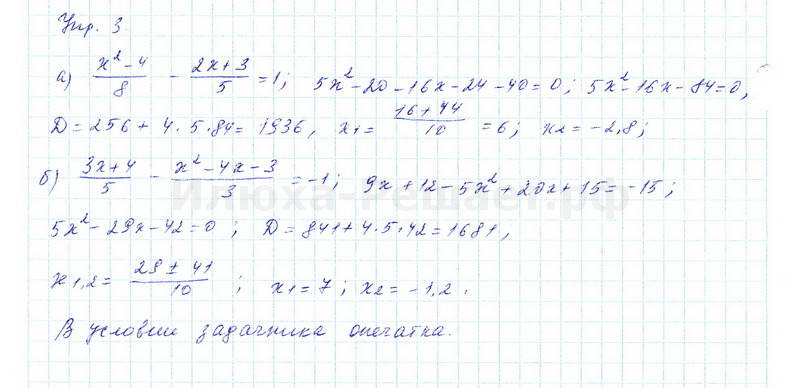 Упр. 3
а) (x² - 4)/8 - (2x + 3)/5 = 1; 5x² - 20 - 16x - 24 - 40 = 0; 5x² - 16x - 84 = 0,
D = 256 + 4 · 5 · 84 = 1936, x₁ = (16 + 44)/10 = 6; x₂ = -2,8;
б) (3x + 4)/5 - (x² - 4x - 3)/3 = -1; 9x + 12 - 5x² + 20x + 15 = -15;
Илюха-Решает.рф
5x² - 29x - 42 = 0; D = 841 + 4 · 5 · 42 = 1681,
x₁,₂ = (29 ± 41)/10; x₁ = 7; x₂ = -1,2.
В условии задачника опечатка.